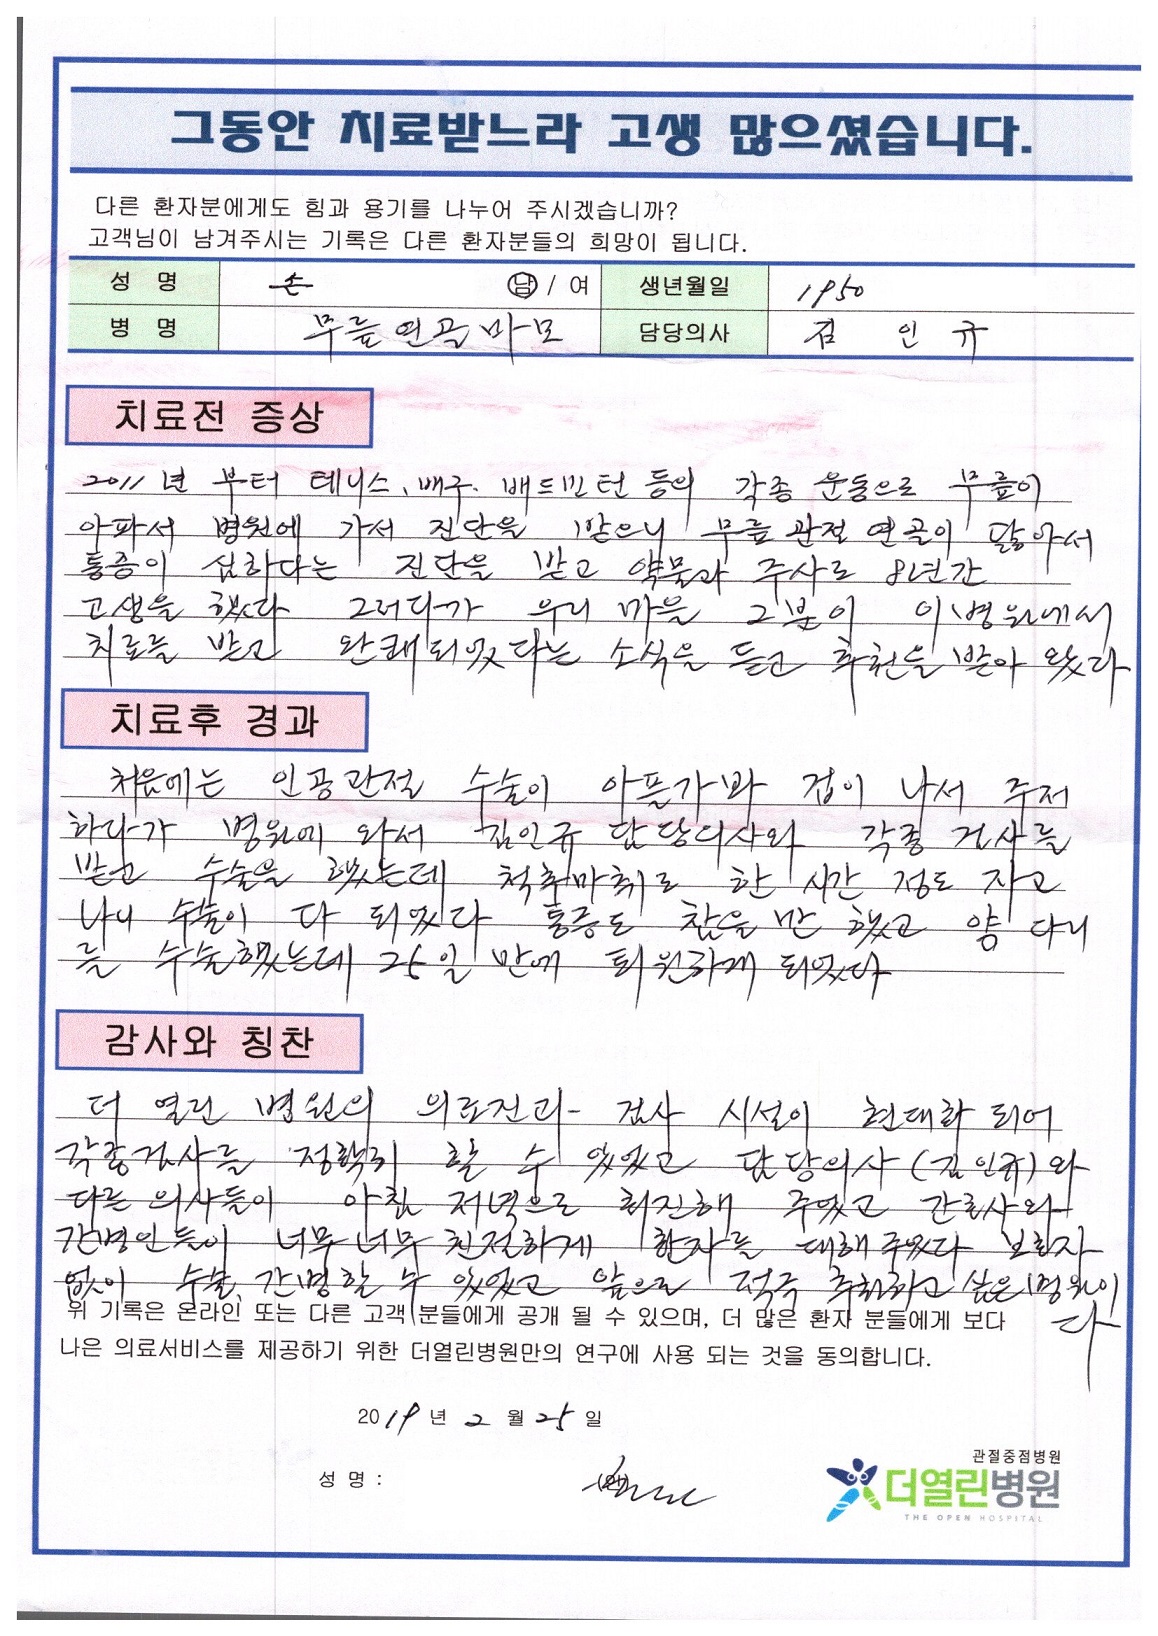 그동안 치료받느라 고생 많으셨습니다.
다른 환자분에게도 힘과 용기를 나누어 주시겠습니까?
고객님이 남겨주시는 기록은 다른 환자분들의 희망이 됩니다.
성 명 손 남 / 여 생년월일 1950
병 명 무릎연골마모 담당의사 김 인 규
치료전 증상
2011년 부터 테니스, 배구. 배드민턴 등의 각종 운동으로 무릎이
아파서 병원에 가서 진단을 받으니 무릎관절 연골이 닳아서
통증이 심하다는 진단을 받고 약물과 주사로 8년간
고생을 했다 그러다가 우리 마을 2분이 이병원에서
치료를 받고 완쾌되었다는 소식을 듣고 추천을 받아 왔다
치료후 경과
처음에는 인공관절 수술이 아플가봐 겁이 나서 주저
하다가 병원에 와서 김인규 담당의사와 각종 검사를
받고 수술을 했는데 척추마취로 한 시간 정도 자고
나니 수술이 다 되었다 통증도 참을만 했고 양 다리
를 수술했는데 25일 만에 퇴원하게 되었다
감사와 칭찬
더 열린 병원의 의료진과 검사 시설이 현대화 되어
각종검사를 정확히 할 수 있었고 담당의사(김인규)와
다른 의사들이 아침 저녁으로 회진해 주었고 간호사와
간병인들이 너무너무 친절하게 환자를 대해주었다 보호자
없이 수술, 간병할 수 있었고 앞으로 적극 추천하고 싶은 병원이
다
위 기록은 온라인 또는 다른 고객 분들에게 공개 될 수 있으며, 더 많은 환자 분들에게 보다
나은 의료서비스를 제공하기 위한 더열린병원만의 연구에 사용 되는 것을 동의합니다.
2019년 2월 25일
성 명 :
관절중점병원
더열린병원
THE OPEN HOSPITAL